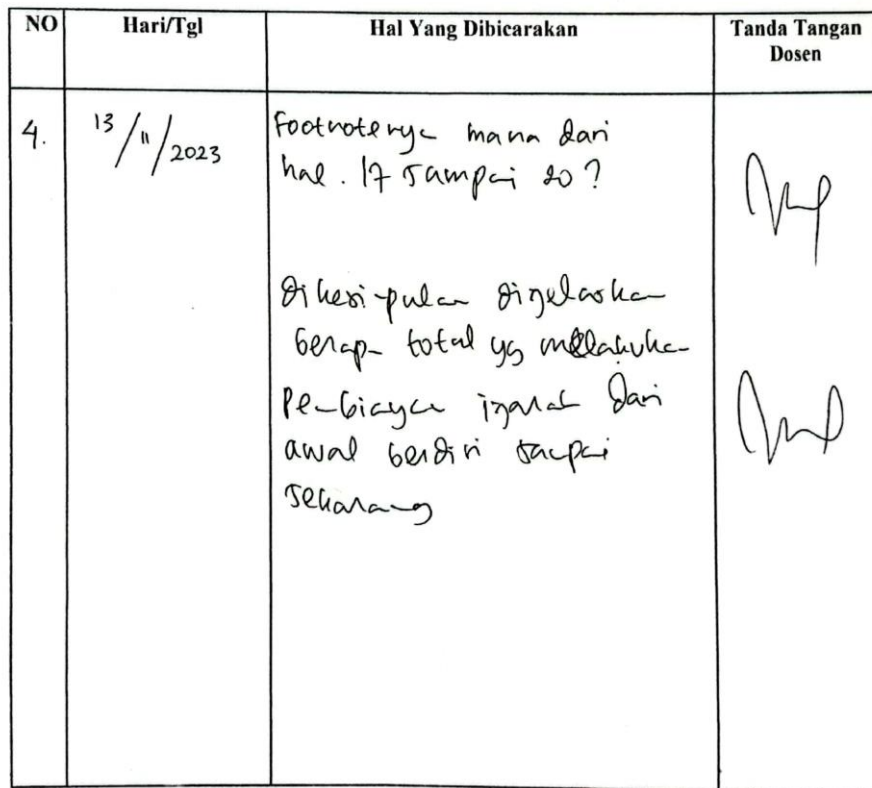 NO Hari/Tgl Hal Yang Dibicarakan Tanda Tangan Dosen
4. 13/11/2023 Footnotenya mana dari
hal. 17 sampai 20?
Dikesimpulan dijelaskan
berapa total yg melakukan
Pembiayaan ijarah dari
awal berdiri sampai
sekarang